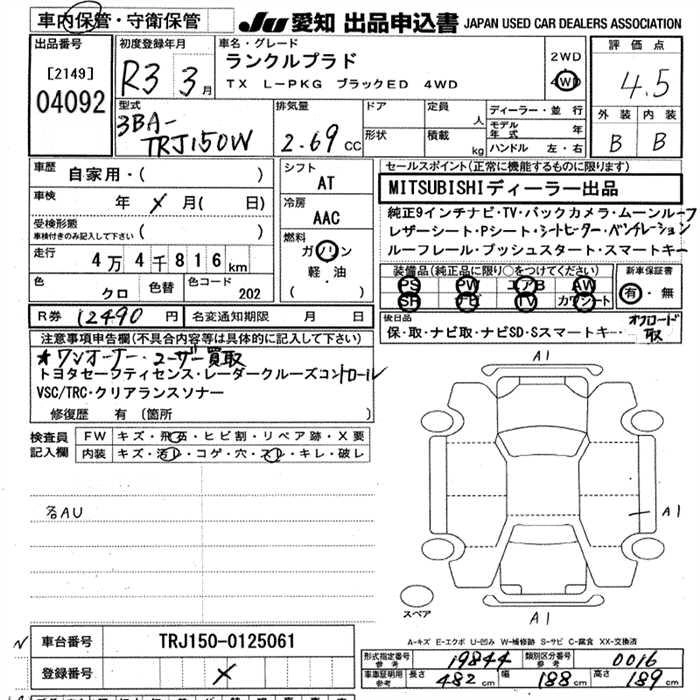 車内保管・守衛保管
JU 愛知 出品申込書 JAPAN USED CAR DEALERS ASSOCIATION
出品番号
[2149]
04092
初度登録年月
R3 3月
車名・グレード
ランクルプラド
TX L-PKG ブラックED 4WD
2WD
4WD
評価点
4.5
外装 内装
B B
型式
3BA-
TRJ150W
排気量
2.69 CC
ドア
形状
定員 人
積載 kg
ディーラー・並行
モデル年式 年
ハンドル 左・右
車歴 自家用・( )
車検 年 メ 月( 日)
受検形態
車検付きのみ記入して下さい ( )
走行 4万4千816km
色 クロ 色替 色コード 202
シフト
AT
冷房
AAC
燃料
ガソリン
軽・油
( )
R券 12490 円 名変通知期限 月 日
セールスポイント(正常に機能するものに限ります)
MITSUBISHIディーラー出品
純正9インチナビ・TV・バックカメラ・ムーンルーフ
レザーシート・Pシート・シートヒーター・ベンチレーション
ルーフレール・プッシュスタート・スマートキー
装備品(純正品に限り○をつけてください) 新車保証書
PS PW エアB AW
SR ナビ TV カワシート
有・無
後日品
保・取・ナビ取・ナビSD・Sスマートキー オフロード取
注意事項申告欄(不具合内容等は具体的に記入して下さい)
★ワンオーナー・ユーザー買取
トヨタセーフティセンス・レーダークルーズコントロール
VSC/TRC・クリアランスソナー
修復歴 有(箇所 )
検査員
記入欄
FW キズ・飛石・ヒビ割・リペア跡・X要
内装 キズ・汚レ・コゲ・穴・スレ・キレ・破レ
各AU
A1
A1
A1
スペア
A-キズ E-エクボ U-凹み W-補修跡 S-サビ C-腐食 XX-交換済
車台番号 TRJ150-0125061
登録番号 メ
形式指定番号 参考 19844 類別区分番号 参考 0016
車車証明用 参考 長さ 482 cm 幅 188 cm 高さ 189 cm